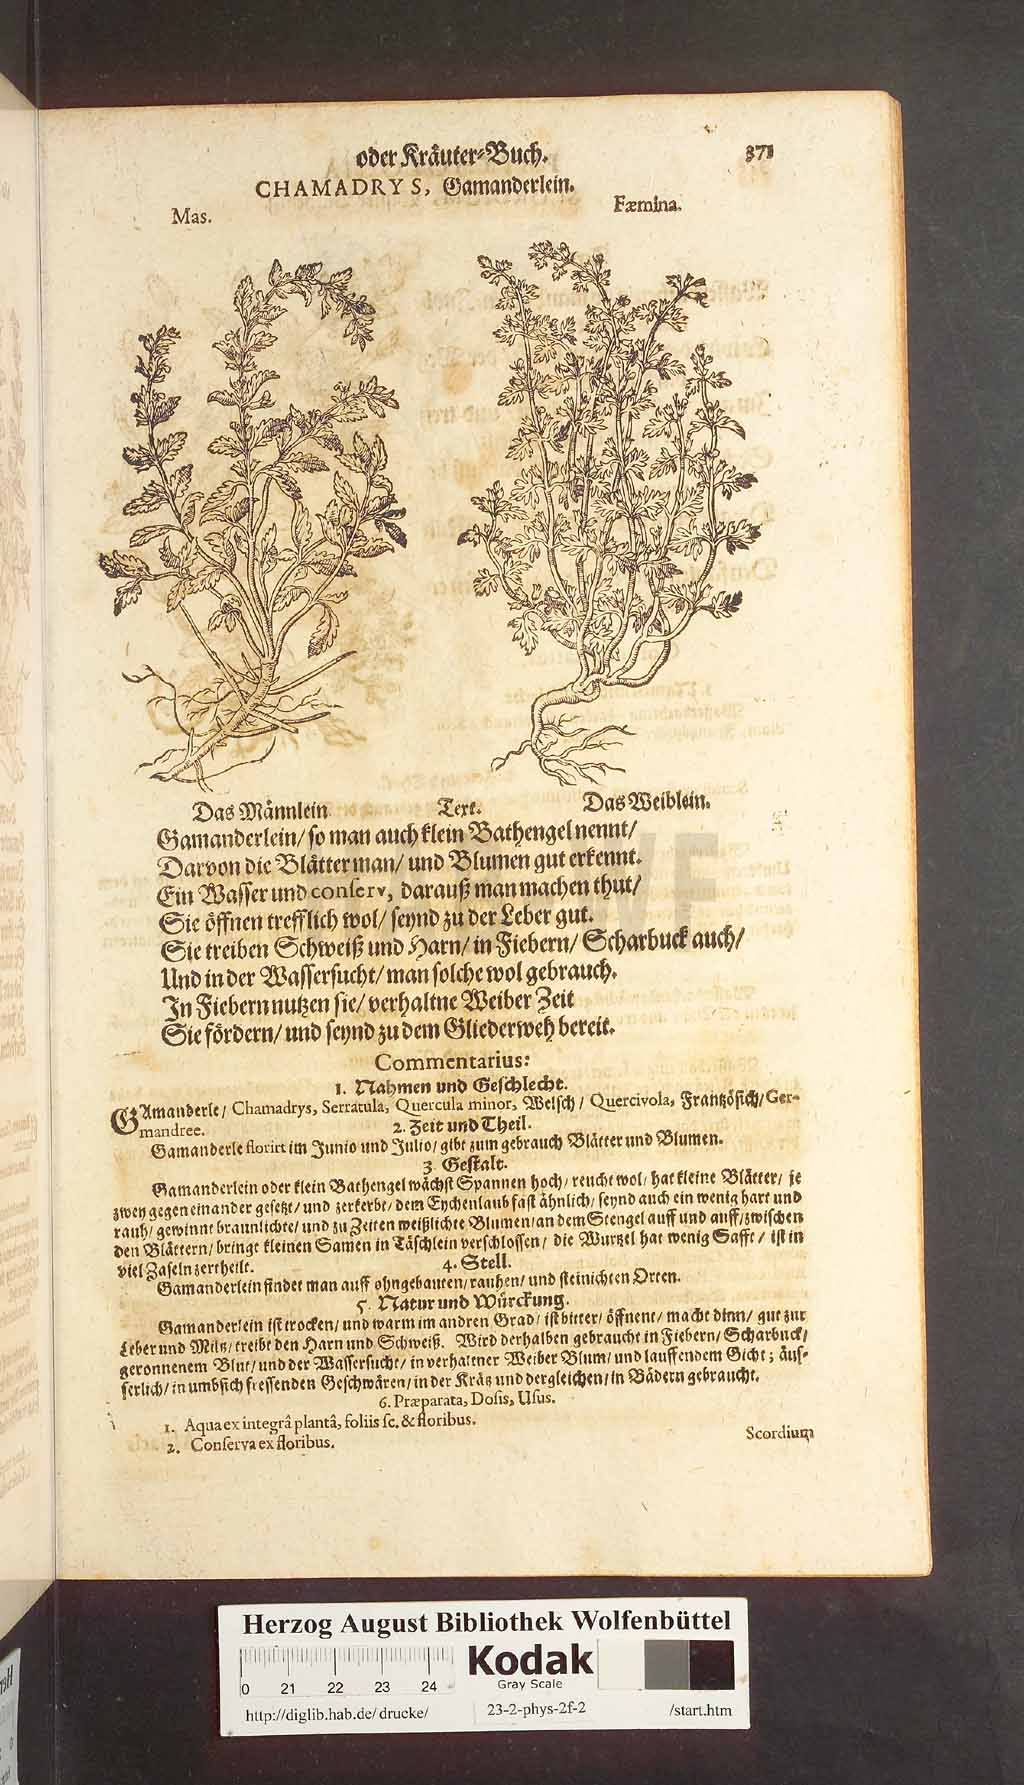 oder Kräuter-Buch. 371
CHAMADRYS, Gamanderlein.
Mas. Fæmina.
Das Männlein Text. Das Weiblein.
Gamanderlein/ so man auch klein Bathengel nennt/
Darvon die Blätter man/ und Blumen gut erkennt.
Ein Wasser und conserv, darauß man machen thut/
Sie öffnen trefflich wol/ seynd zu der Leber gut.
Sie treiben Schweiß und Harn/ in Fiebern/ Scharbuck auch/
Und in der Wassersucht/ man solche wol gebrauch.
In Fiebern nutzen sie/ verhaltne Weiber Zeit
Sie fördern/ und seynd zu dem Gliederweh bereit.
Commentarius:
1. Nahmen und Geschlecht.
GAmanderle/ Chamadrys, Serratula, Quercula minor, Welsch/ Quercivola, Frantzösich/ Ger-
mandree. 2. Zeit und Theil.
Gamanderle florirt im Junio und Julio/ gibt zum gebrauch Blätter und Blumen.
3. Gestalt.
Gamanderlein oder klein Bathengel wächst Spannen hoch/ reucht wol/ hat kleine Blätter/ je
zwey gegen einander gesetzt/ und zerkerbt/ dem Eychenlaub fast ähnlich/ seynd auch ein wenig hart und
rauh/ gewinnt braunlichte/ und zu Zeiten weißlichte Blumen/ an dem Stengel auff und auff/ zwischen
den Blättern/ bringt kleinen Samen in Täschlein verschlossen/ die Wurtzel hat wenig Safft/ ist in
viel Zaseln zertheilt. 4. Stell.
Gamanderlein findet man auff ohngebauten/ rauhen/ und steinichten Orten.
5. Natur und Würckung.
Gamanderlein ist trocken/ und warm im andren Grad/ ist bitter/ öffnent/ macht dinn/ gut zur
Leber und Miltz/ treibt den Harn und Schweiß. Wird derhalben gebraucht in Fiebern/ Scharbuck/
geronnenem Blut/ und der Wassersucht/ in verhaltner Weiber Blum/ und lauffendem Gicht; äus-
serlich/ in umbsich fressenden Geschwären/ in der Krätz und dergleichen/ in Bädern gebraucht.
6. Præparata, Dosis, Usus.
1. Aqua ex integrâ plantâ, foliis sc. & floribus.
2. Conserva ex floribus. Scordium
Herzog August Bibliothek Wolfenbüttel
0 21 22 23 24
Kodak
Gray Scale
http://diglib.hab.de/drucke/ 23-2-phys-2f-2 /start.htm